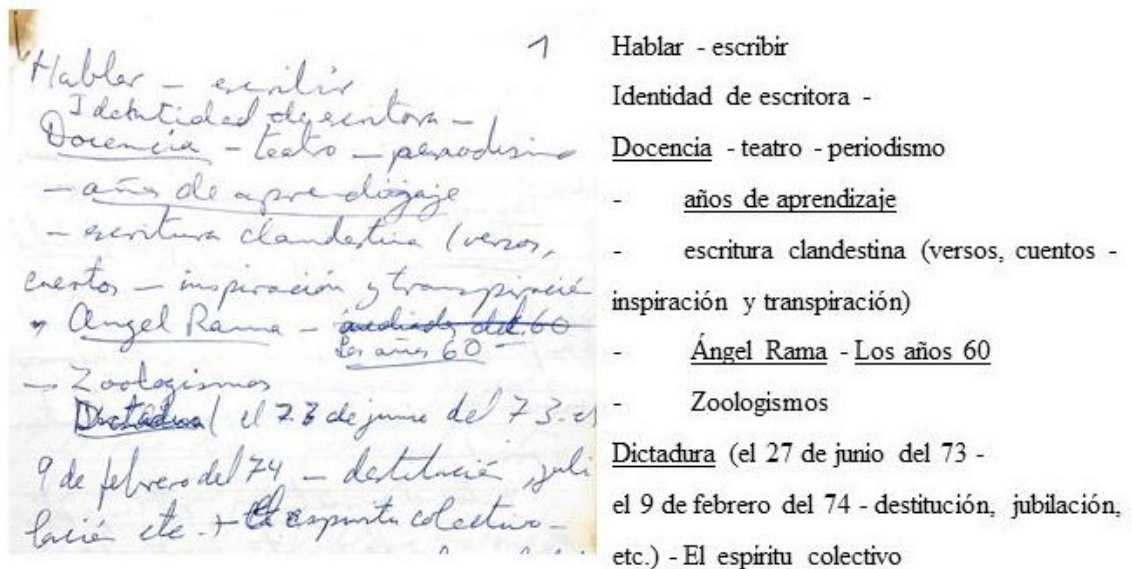 1
Hablar – escribir
Identidad de escritora –
Docencia – teatro – periodismo
– años de aprendizaje
– escritura clandestina (versos,
cuentos – inspiración y transpiración
Angel Rama – mediados del 60
Los años 60
– Zoologismos
Dictadura ( el 27 de junio del 73 – el
9 de febrero del 74 – destitución, jubi
lación etc. – El espíritu colectivo –
Hablar - escribir
Identidad de escritora -
Docencia - teatro - periodismo
- años de aprendizaje
- escritura clandestina (versos, cuentos -
inspiración y transpiración)
- Ángel Rama - Los años 60
- Zoologismos
Dictadura (el 27 de junio del 73 -
el 9 de febrero del 74 - destitución, jubilación,
etc.) - El espíritu colectivo